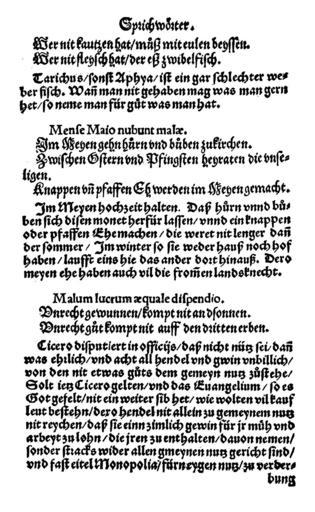 Sprichwörter.
Wer nit kautzen hat/ můß mit eulen beyssen.
Wer nit fleysch hat/ der eß zwibelfisch.
Tarichus/ sonst Aphya/ ist ein gar schlechter we-
ber fisch. Wañ man nit gehaben mag was man gern
het/ so neme man für gůt was man hat.
Mense Maio nubunt malæ.
Im Meyen gehn hůrn vnd bůben zukirchen.
Zwischen Ostern vnd Pfingsten heyraten die vnse-
ligen.
Knappen vñ pfaffen Eh werden im Meyen gemacht.
Im Meyen hochzeit halten. Daß hůrn vnnd bů-
ben sich disen monet herfür lassen/ vnnd ein knappen
oder pfaffen Ehe machen/ die weret nit lenger dañ
der sommer/ Im winter so sie weder hauß noch hof
haben/ laufft eins hie das ander dort hinauß. Dero
meyen ehe haben auch vil die from̃en landsknecht.
Malum lucrum æquale dispendio.
Vnrecht gewunnen/ kompt nit an d sonnen.
Vnrecht gůt kompt nit auff den dritten erben.
Cicero disputiert in officijs/ daß nicht nütz sei/ dañ
was ehrlich/ vnd acht all hendel vnd gwin vnbillich/
von den nit etwas gůts dem gemeyn nutz zůstehe/
Solt ietz Cicero gelten/ vnd das Euangelium/ so es
Got gefelt/ nit ein weiter sib het/ wie wolten vil kauf
leut bestehn/ dero hendel nit allein zu gemeynem nutz
nit reychen/ daß sie einn zimlich gewin für jr müh vnd
arbeyt zu lohn/ die jren zu enthalten/ dauon nemen/
sonder stracks wider allen gmeynen nutz gericht sind/
vnd fast eitel Monopolia/ für neygen nutz/ zu verder-
bung